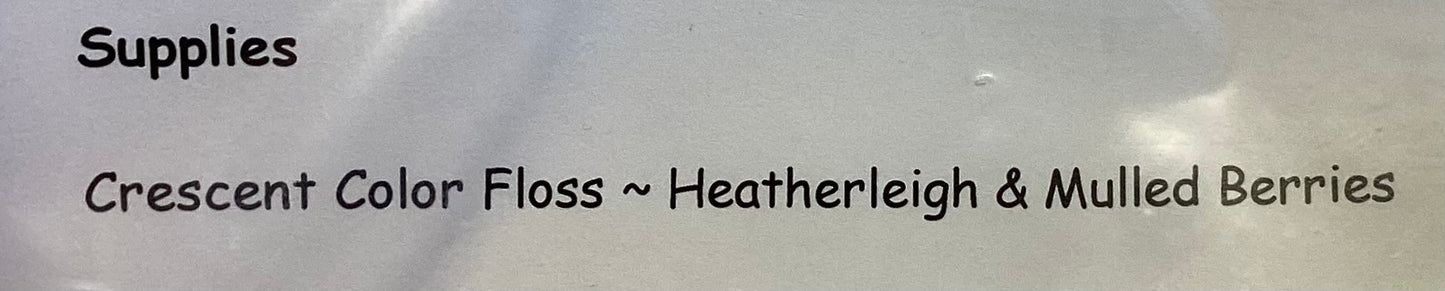 Supplies
Crescent Color Floss ~ Heatherleigh & Mulled Berries